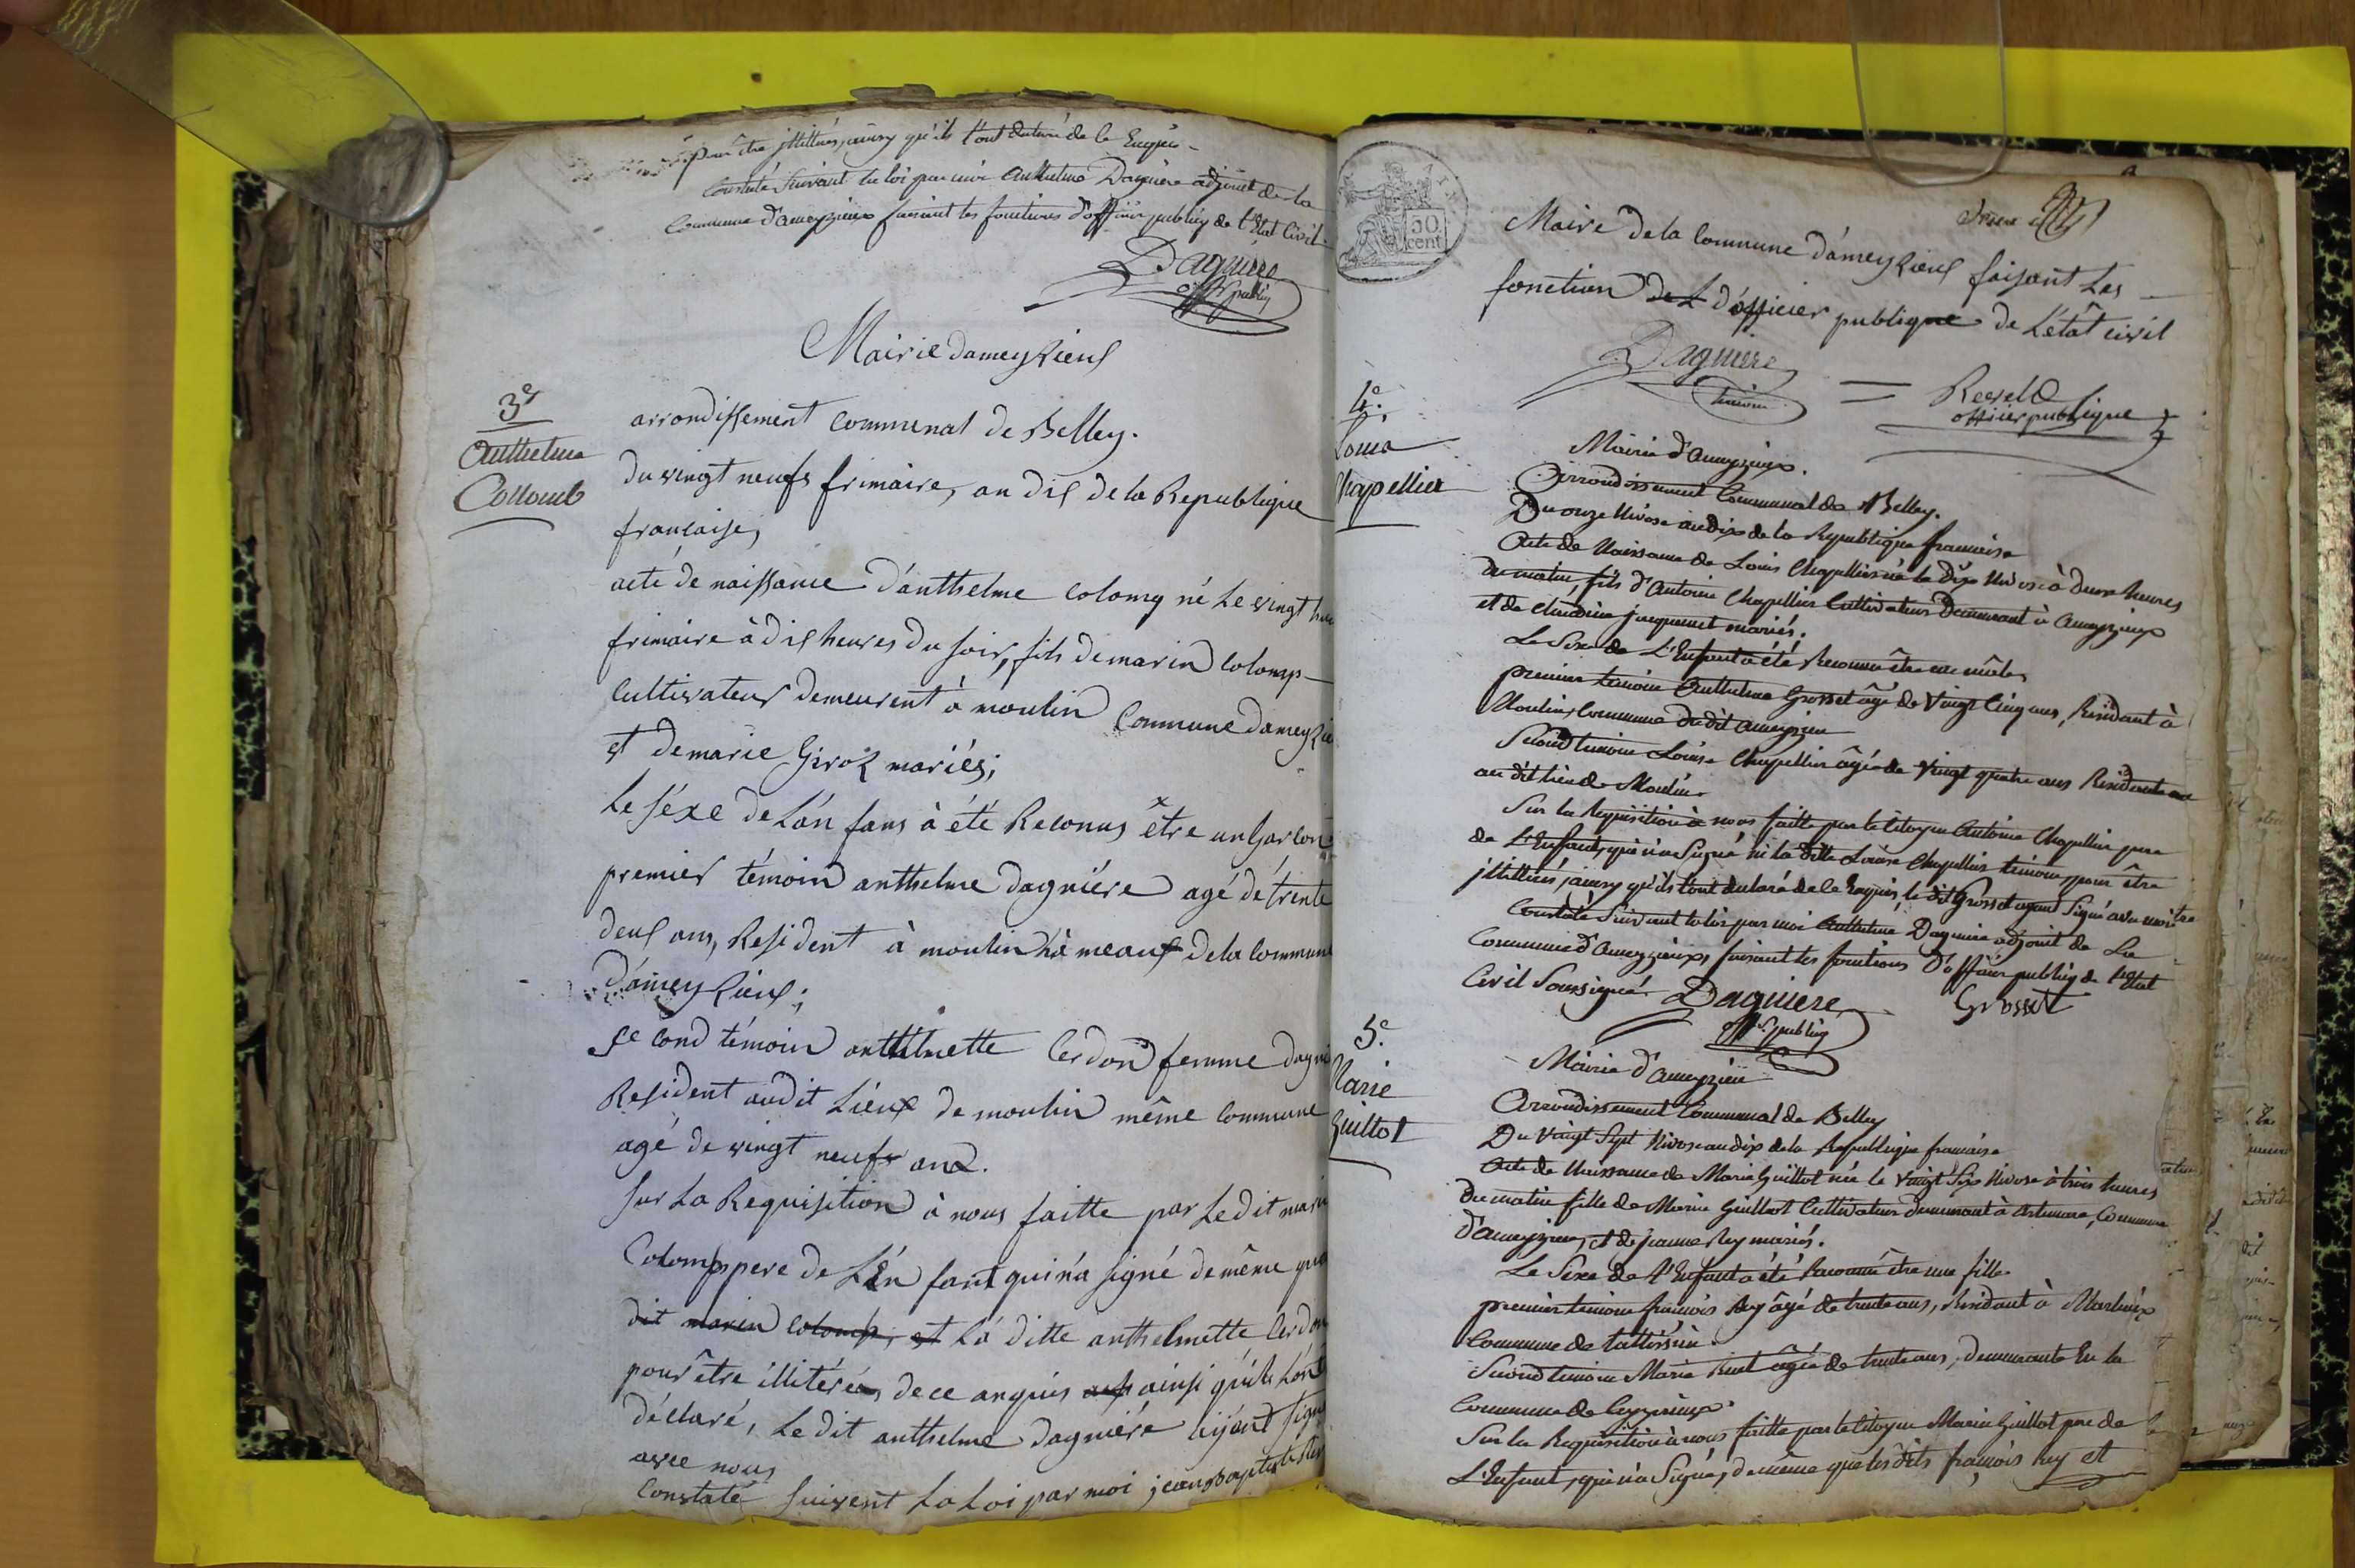 pour être jllittérés, ainsy qu'ils l'ont declaré de le Enquis
Constaté Suivant la loi par moi Anthelme Dagniere adjoint de la
Commune d'ameyzieux faisant les fonctions d'officier public de l'Etat Civil.
Dagniere
offer public
Mairie dameyzieux
3e
Anthelme
Collomb
arrondissement communal de Belley.
du vingt neufs frimaire, an dix de la Republique
française,
acte de naissance d'anthelme colomp né Le vingt huit
frimaire à dix heures du soir, fils de marin colomp
Cultivateur demeurent à moulin Commune dameyzie
et de marie Giroz mariés;
Le séxe de L'án fans à été Reconus être un Garcon
premier témoin anthelme dagniére agé de trente
deux ans, Resident à moulin hàmeaux de la Commune
d'ameyzieux;
second témoin anthelmette Cerdon femme dagni
Resident audit Lieux de moulin même commune
agé de vingt neufs ans.
sur La Requisition à nous faitte par Ledit marin
Colomp pere de L'En fant qui n'a signé de même que
dit marin colomp, et La ditte anthelmette Cerdon
pour être illiterées de ce anquis ainsi qu'ils L'ont
déclaré, Le dit anthelme dagniére signé
avec nous
Constaté suivent La Loi par moi jean baptiste
50
cent
Maire de la Commune d'ameyzieux faisant Les
fonction de L d'officier publique de L'état civil
Dagniere
témoin
officier publique
4e.
Louis
Chapellier
Mairie d'ameyzieux.
Arrondissement Communal de Belley.
Du onze Nivose an dix de la Republique francaise
Acte de Naissance de Louis Chapellier né le Dix Nivose à deux heures
du matin, fils d'Antoine Chapellier Cultivateur Demeurant à ameyzieux
et de claudine jacquemet mariés.
Le Sexe de L'Enfant à été Reconnu être un mâle
premier temoin Anthelme Grosset âgé de Vingt Cinq ans, Residant à
Moulin, Commune du dit ameyzieu
Second temoin Louise Chapellier âgée de Vingt quatre ans Residante
au dit lieu de Moulin
Sur la Requisition à nous faitte par le Citoyen Antoine Chapellier pere
de L'Enfant, qui n'a Signé ni la ditte Louise Chapellier temoin, pour être
jllittérés, ainsy qu'ils l'ont declaré de le Enquis, le dit Grosset ayant Signé avec notre
Constaté Suivant la loi par moi Anthelme Dagniere adjoint de La
Commune d'ameyzieux, faisant les fonctions D'officier public de l'Etat
Civil Soussigné.
Dagniere
Grosset
offer public
5e.
Marie
Guillot
Mairie d'ameyzieu
Arrondissement Communal de Belley
Du Vingt Sept Nivose an dix de la Republique francaise
Acte de Naissance de Marie Guillot née le Vingt Six Nivose à trois heures
du matin fille de Marin Guillot Cultivateur demeurant à Artemare, Commune
d'ameyzieu, et de jeanne Rey mariés.
Le Sexe de l'Enfant à été Reconnu être une fille
premier temoin françois Rey âgé de trente ans, Residant à
Commune de
Second temoin Marie âgée de trente ans, demeurante En la
Commune de
Sur la Requisition à nous faitte par le Citoyen Marin Guillot pere de
L'Enfant, qui n'a Signé, de même que les dits françois Rey et